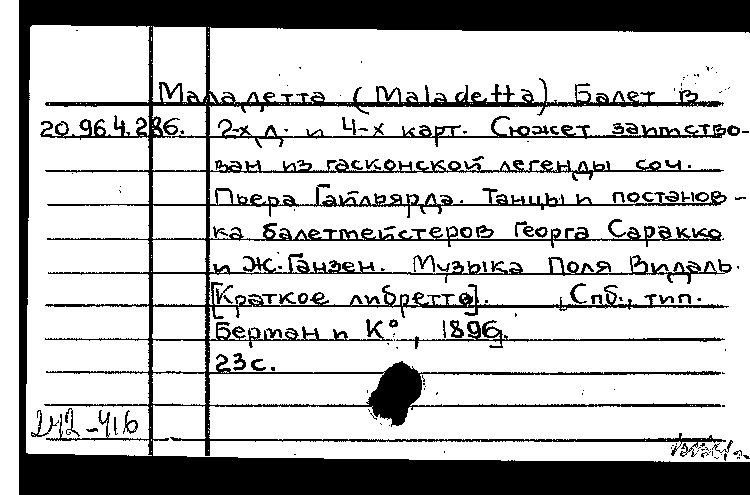 Маладетта (Maladetta). Балет в
20.96.4.286. 2-х д. и 4-х карт. Сюжет заимство-
ван из гасконской легенды соч.
Пьера Гайльярда. Танцы и постанов-
ка балетмейстеров Георга Саракко
и Ж. Ганзен. Музыка Поля Видаль.
[Краткое либретто]. Спб., тип.
Берман и К°, 1896.
23 с.
242-416